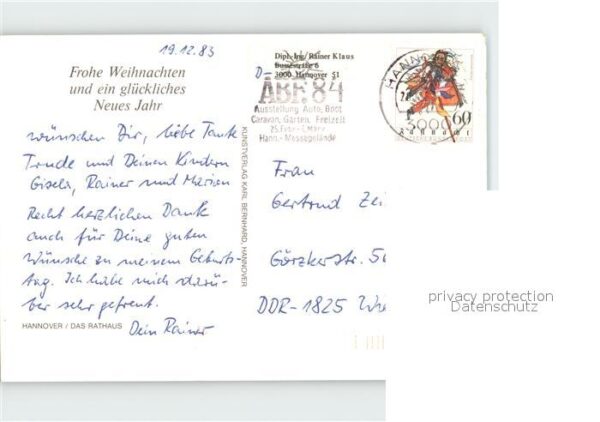 19.12.83
Frohe Weihnachten
und ein glückliches
Neues Jahr
wünschen Dir, liebe Tante
Trude und Deinen Kindern
Gisela, Rainer und Marion
Recht herzlichen Dank
auch für Deine guten
Wünsche zu meinem Geburts-
tag. Ich habe mich darü-
ber sehr gefreut.
Dein Rainer
HANNOVER / DAS RATHAUS
KUNSTVERLAG KARL BERNHARD, HANNOVER
Dipl.-Ing. Rainer Klaus
3000 Hannover 51
ABF 84
Ausstellung Auto, Boot
Caravan, Garten, Freizeit
Hann.-Messegelände
HANNO
3000
60
Frau
Gertrud
Görzkerstr. 56
DDR-1825
privacy protection
Datenschutz